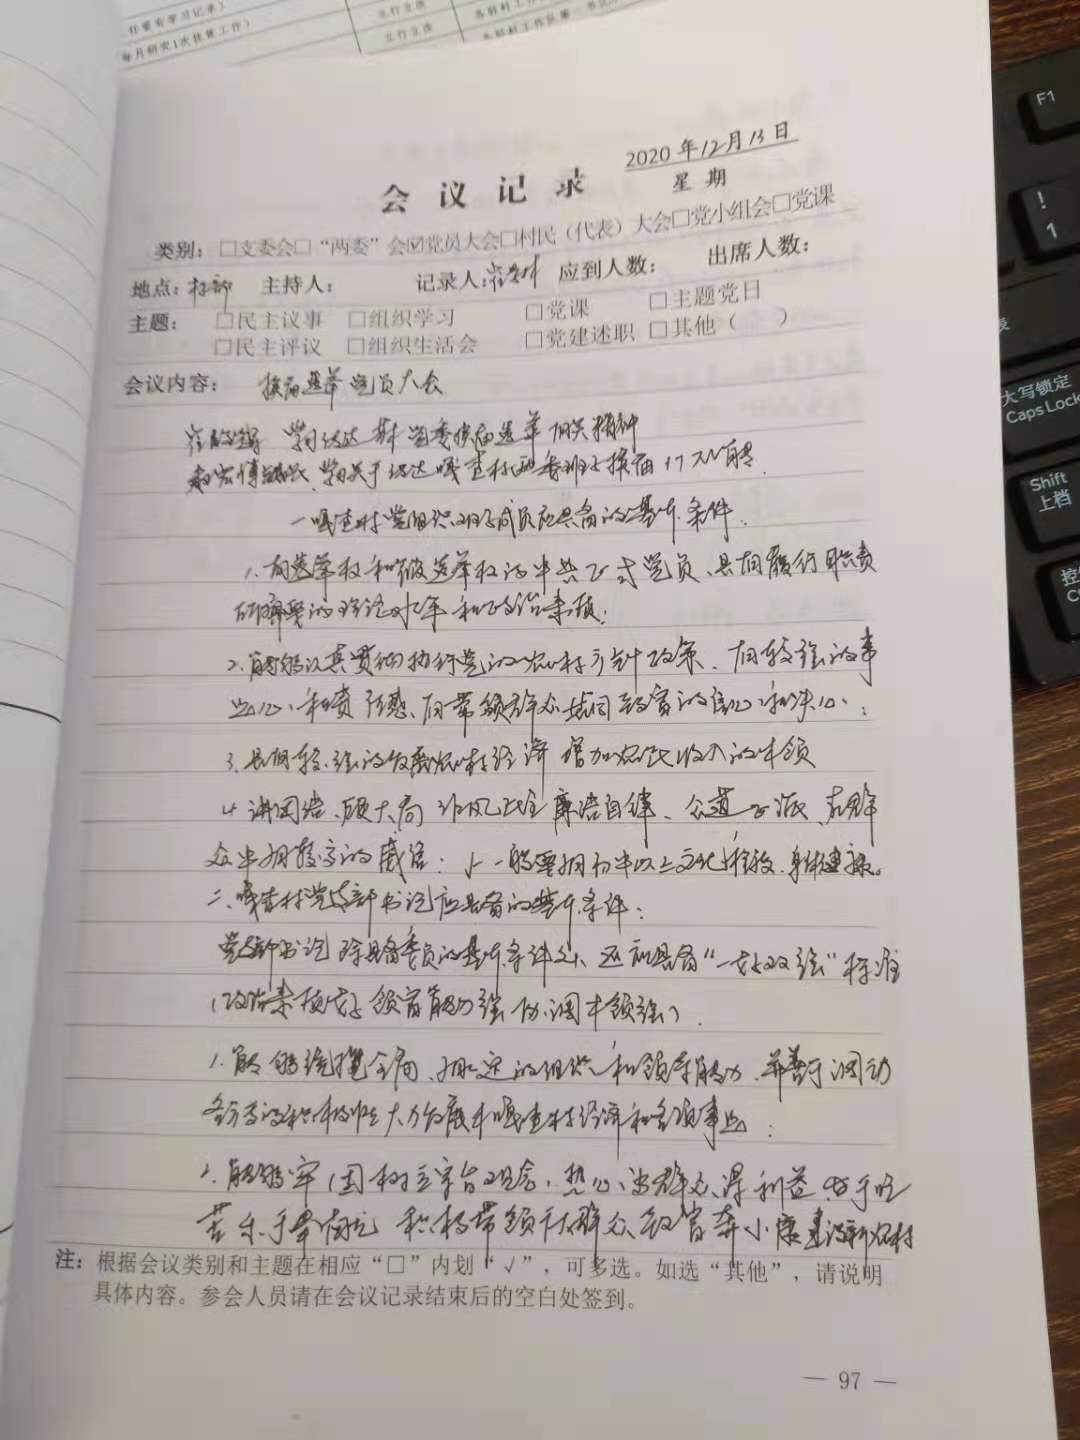 任要有学习记录）
每月研究1次扶贫工作）
立行立改
立行立改
各驻村工作队
会议记录
2020年12月13日
星期
类别：□支委会□“两委”会☑党员大会□村民（代表）大会□党小组会□党课
地点：村部 主持人： 记录人： 应到人数： 出席人数：
主题： □民主议事 □组织学习 □党课 □主题党日
□民主评议 □组织生活会 □党建述职 □其他（ ）
会议内容： 换届选举党员大会
学习传达 党委换届选举相关精神
学习关于传达嘎查村两委班子换届
一 嘎查村党组织班子成员应具备的基本条件。
1.有选举权和被选举权的中共正式党员、具有履行职责
所需要的理论水平和政治素质；
2.能够认真贯彻执行党的农村方针政策、有较强的事
业心和责任感、有带领群众共同致富的信心和决心；
3.具有较强的发展农村经济 增加农民收入的本领
4 讲团结、顾大局 作风正 廉洁自律、公道正派、在群
众中有较高的威信；5 一般要有初中以上文化程度、身体健康。
二、嘎查村党支部书记应具备的基本条件：
党支部书记除具备委员的基本条件之外、还应具备“一好双强”标准
（政治素质好 领富能力强 协调本领强）.
1.能够统揽全局、有一定的组织和领导能力、并善于调动
各方面积极性大力发展本嘎查村经济和各项事业；
2.能够牢固树立宗旨观念、热心为群众谋利益、甘于吃
苦 乐于奉献 积极带领干大群众致富奔小康建设新农村
注：根据会议类别和主题在相应“□”内划“√”，可多选。如选“其他”，请说明
具体内容。参会人员请在会议记录结束后的空白处签到。
— 97 —
F1
!
1
大写锁定
Caps Lock
Shift
上档
控